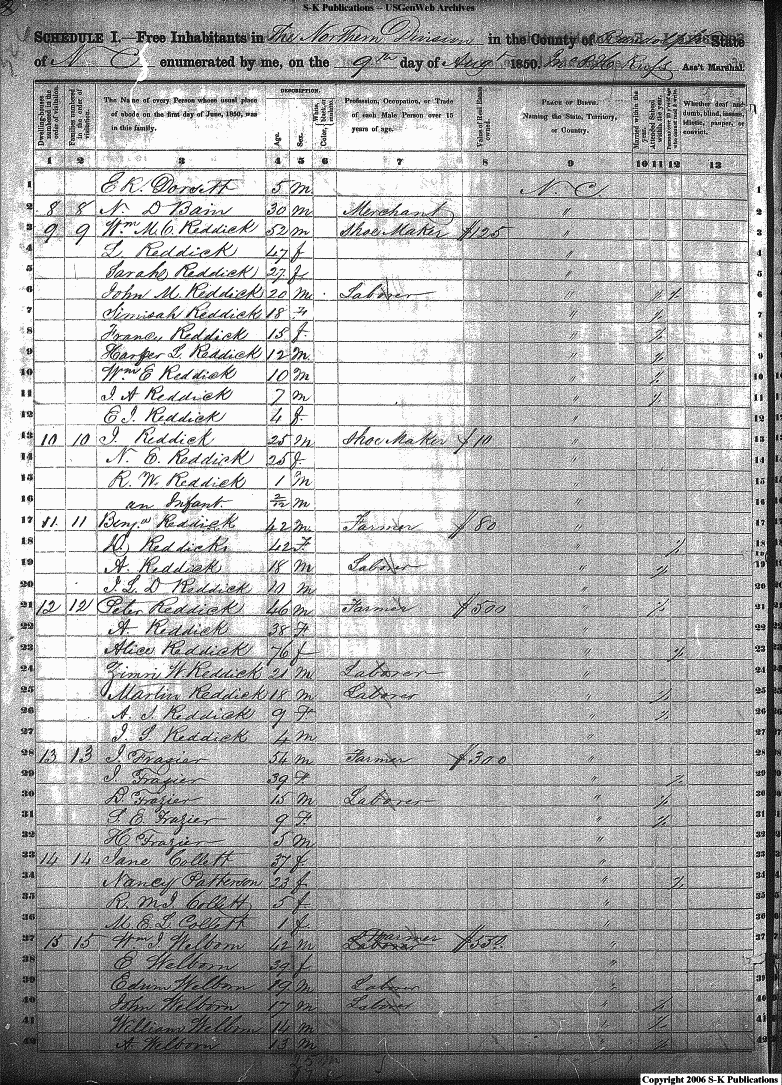 S-K Publications – USGenWeb Archives
SCHEDULE I.—Free Inhabitants in The Northern Division in the County of Randolph State
of N C enumerated by me, on the 9th day of Augt 1850. Ass't Marshal.
Dwelling-houses numbered in the order of visitation.
Families numbered in the order of visitation.
The Name of every Person whose usual place of abode on the first day of June, 1850, was in this family.
DESCRIPTION.
Age.
Sex.
White, black, or mulatto.
Profession, Occupation, or Trade of each Male Person over 15 years of age.
Value of Real Estate owned.
PLACE OF BIRTH. Naming the State, Territory, or Country.
Married within the year.
Attended School within the year.
Whether deaf and dumb, blind, insane, idiotic, pauper, or convict.
1 2 3 4 5 6 7 8 9 10 11 12 13
1 E K. Dorsett 5 m N. C. 1
2 8 8 N. D Bain 30 m Merchant " 2
3 9 9 Wm M. C. Reddick 52 m Shoe Maker $125 " 3
4 L. Reddick 47 f " 4
5 Sarah Reddick 27 f " 5
6 John M. Reddick 20 m Laborer " 6
7 Reddick 18 " 7
8 Reddick 15 f " 8
9 Harper L. Reddick 12 m " 9
10 Wm E Reddick 10 m " 10
11 J A Reddick 7 m " 11
12 E J. Reddick 4 f " 12
13 10 10 J. Reddick 25 m Shoe Maker $10 " 13
14 N. E. Reddick 25 f " 14
15 R. W. Reddick 1 m " 15
16 an Infant 2/12 m " 16
17 11 11 Benja Reddick 42 m Farmer $80 " 17
18 Reddick 42 F " 18
19 A. Reddick 18 m Laborer " 19
20 J L. D Reddick 11 m " 20
21 12 12 Peter Reddick 46 m Farmer $500 " 21
22 A. Reddick 38 F " 22
23 Alice Reddick 76 f " 23
24 Zimri W Reddick 21 m Laborer " 24
25 Martin Reddick 18 m Laborer " 25
26 A. J. Reddick 9 F " 26
27 J. S. Reddick 4 m " 27
28 13 13 J. Frazier 54 m Farmer $300 " 28
29 J. Frazier 39 F " 29
30 D. Frazier 15 m Laborer " 30
31 S. E. Frazier 9 F " 31
32 H. Frazier 5 m " 32
33 14 14 Jane Collett 37 f " 33
34 Nancy Patterson 23 f " 34
35 R. M J. Collett 5 f " 35
36 M. E L. Collett 1 f " 36
37 15 15 Wm J. Welborn 42 m Farmer Laborer $550 " 37
38 E Welborn 39 f " 38
39 Edwin Welborn 19 m Laborer " 39
40 John Welborn 17 m Laborer " 40
41 William Welborn 14 m " 41
42 A Welborn 13 m " 42
Copyright 2006 S-K Publications